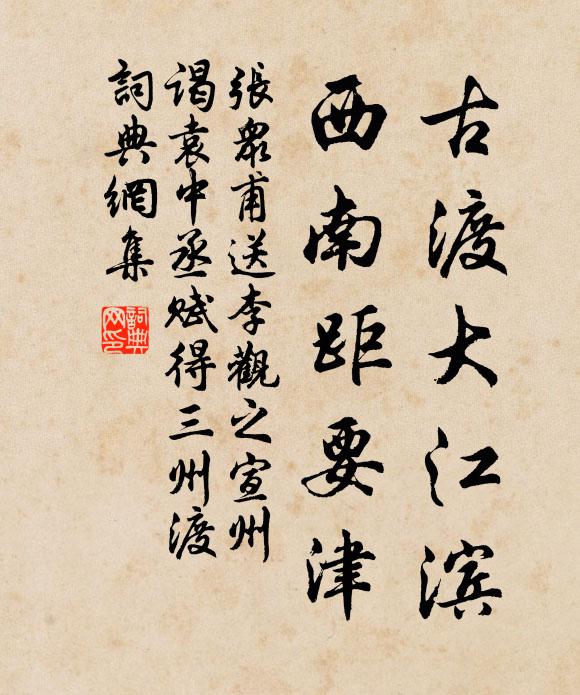 古渡大江滨
西南距要津
張眾甫送李觀之宣州
謁袁中丞賦得三州渡
詞典網集
詞典网印